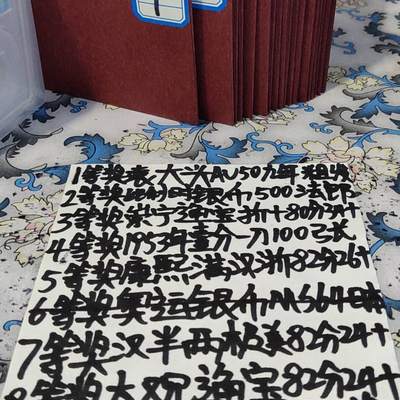 1等奖袁大头AU50九年粗发
2等奖比利时银币500法郎
3等奖乾宁3通宝浙+80分34+
4等奖1953年壹分一刀100
5等奖康熙满汉浙82分26+
6等奖奥运银币MS64
7等奖汉半两极美82分24+
8等奖大观通宝82分24+